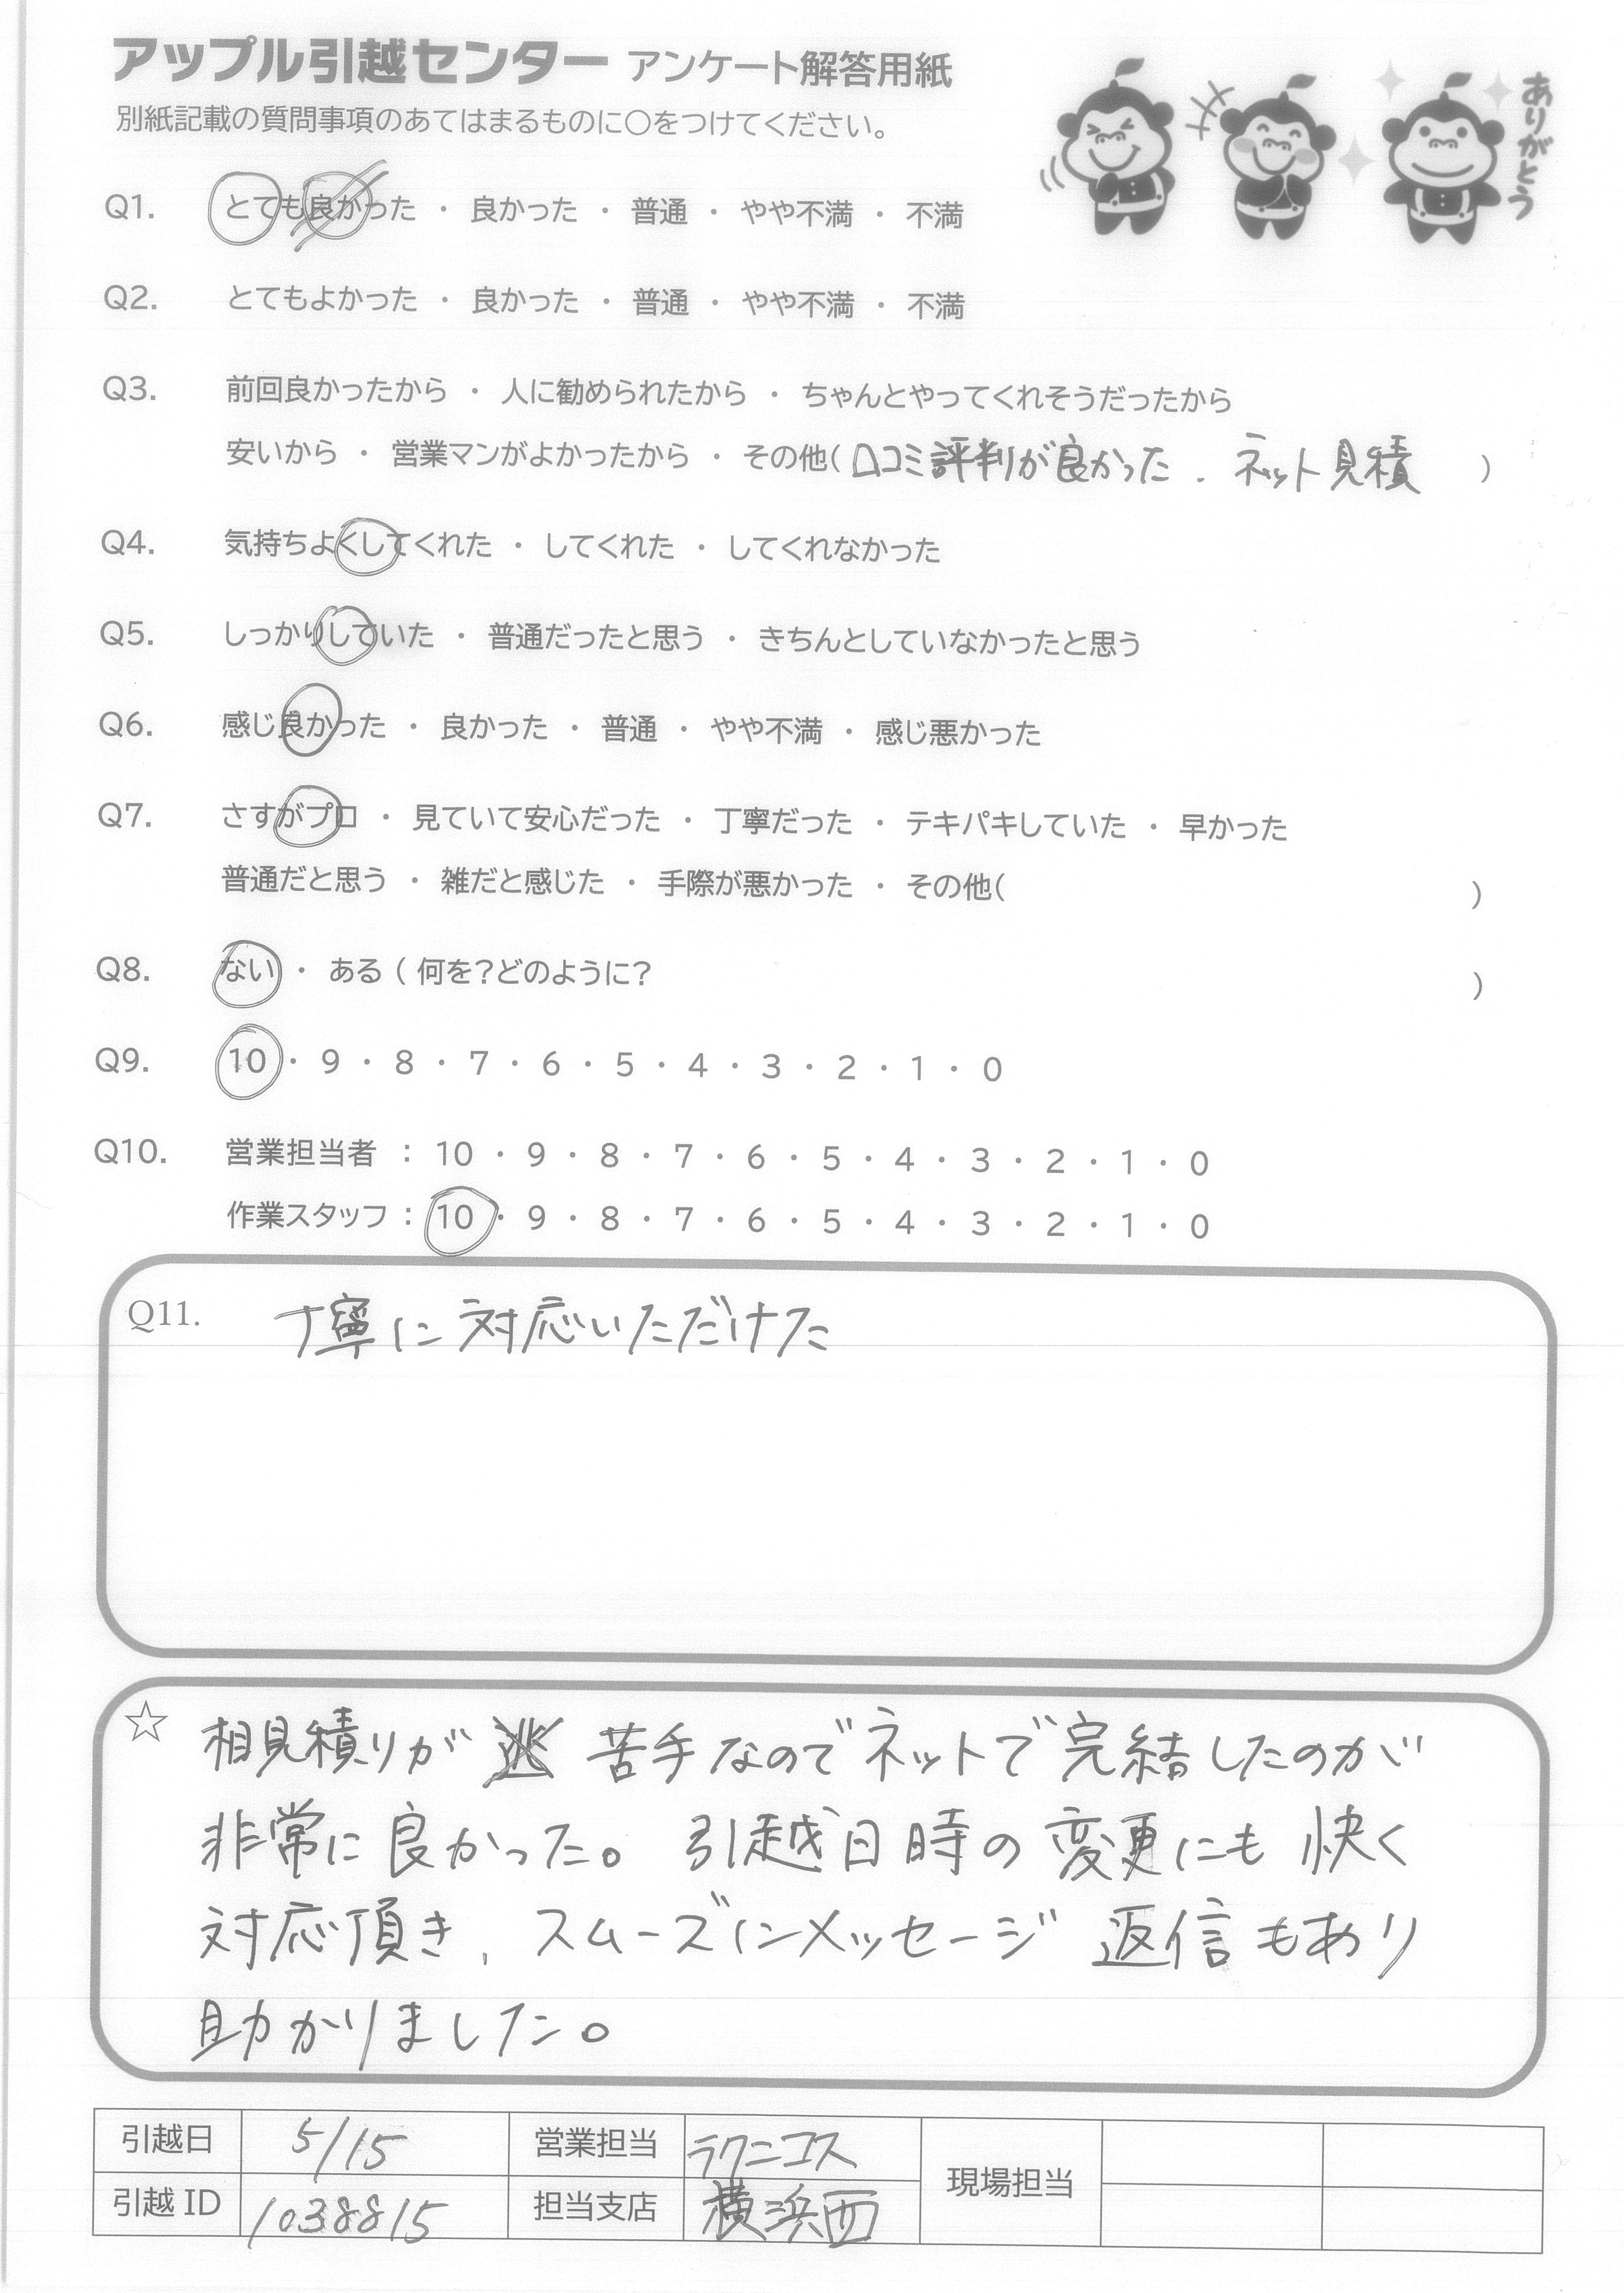 アップル引越センター アンケート解答用紙
別紙記載の質問事項のあてはまるものに〇をつけてください。
ありがとう
Q1. とても良かった ・ 良かった ・ 普通 ・ やや不満 ・ 不満
Q2. とてもよかった ・ 良かった ・ 普通 ・ やや不満 ・ 不満
Q3. 前回良かったから ・ 人に勧められたから ・ ちゃんとやってくれそうだったから
安いから ・ 営業マンがよかったから ・ その他( 口コミ評判が良かった . ネット見積 )
Q4. 気持ちよくしてくれた ・ してくれた ・ してくれなかった
Q5. しっかりしていた ・ 普通だったと思う ・ きちんとしていなかったと思う
Q6. 感じ良かった ・ 良かった ・ 普通 ・ やや不満 ・ 感じ悪かった
Q7. さすがプロ ・ 見ていて安心だった ・ 丁寧だった ・ テキパキしていた ・ 早かった
普通だと思う ・ 雑だと感じた ・ 手際が悪かった ・ その他( )
Q8. ない ・ ある ( 何を?どのように? )
Q9. 10 ・ 9 ・ 8 ・ 7 ・ 6 ・ 5 ・ 4 ・ 3 ・ 2 ・ 1 ・ 0
Q10. 営業担当者 : 10 ・ 9 ・ 8 ・ 7 ・ 6 ・ 5 ・ 4 ・ 3 ・ 2 ・ 1 ・ 0
作業スタッフ : 10 ・ 9 ・ 8 ・ 7 ・ 6 ・ 5 ・ 4 ・ 3 ・ 2 ・ 1 ・ 0
Q11. 丁寧に対応いただけた
☆ 相見積りが 苦手なのでネットで完結したのが
非常に良かった。引越日時の変更にも快く
対応頂き、スムーズにメッセージ返信もあり
助かりました。
引越日 5/15 営業担当 ラクニコス 現場担当
引越 ID 1038815 担当支店 横浜西